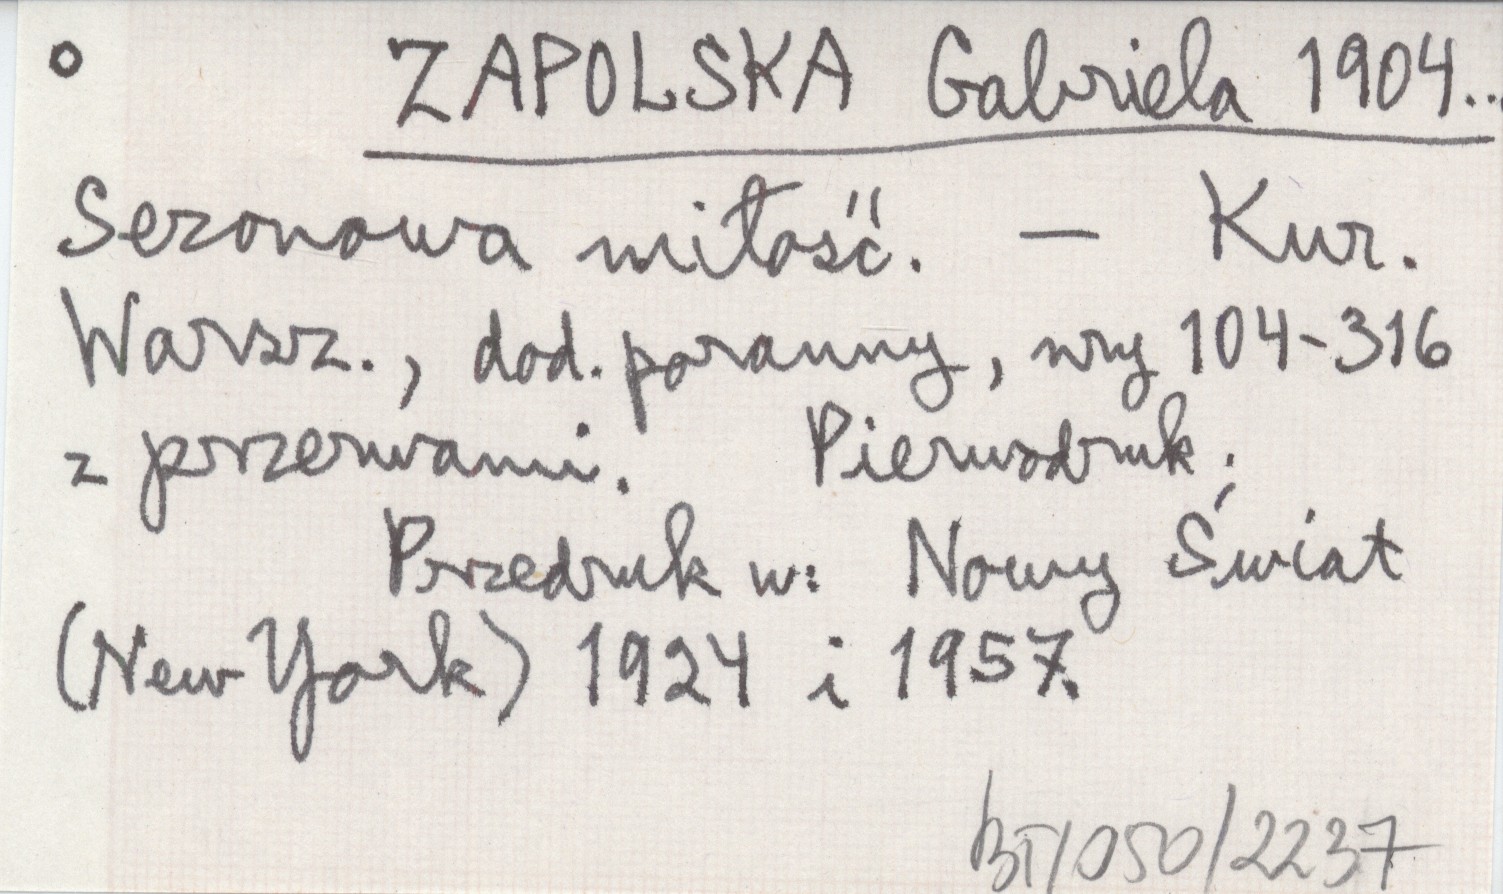 ZAPOLSKA Gabriela 1904...
Sezonowa miłość. – Kur.
Warsz., dod. poranny, nry 104-316
z przerwami. Pierwodruk.
Przedruk w: Nowy Świat
(New York) 1924 i 1957.
BT/050/2237